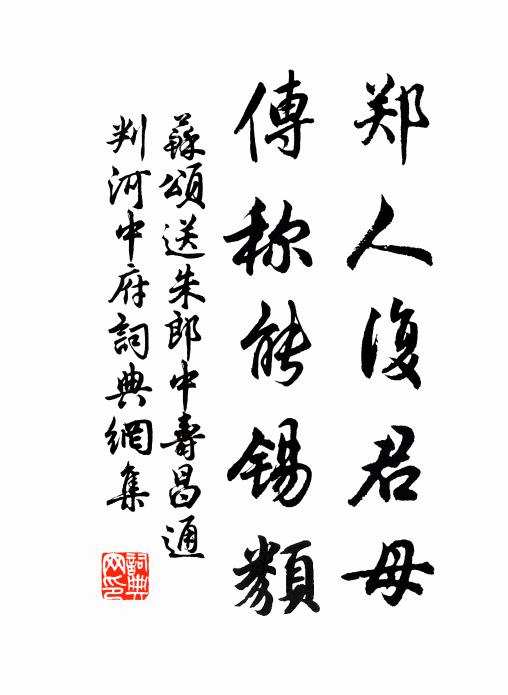 郑人復君母
傳称能锡類
蘇頌送朱郎中壽昌通
判河中府詞典網集
詞典
网印